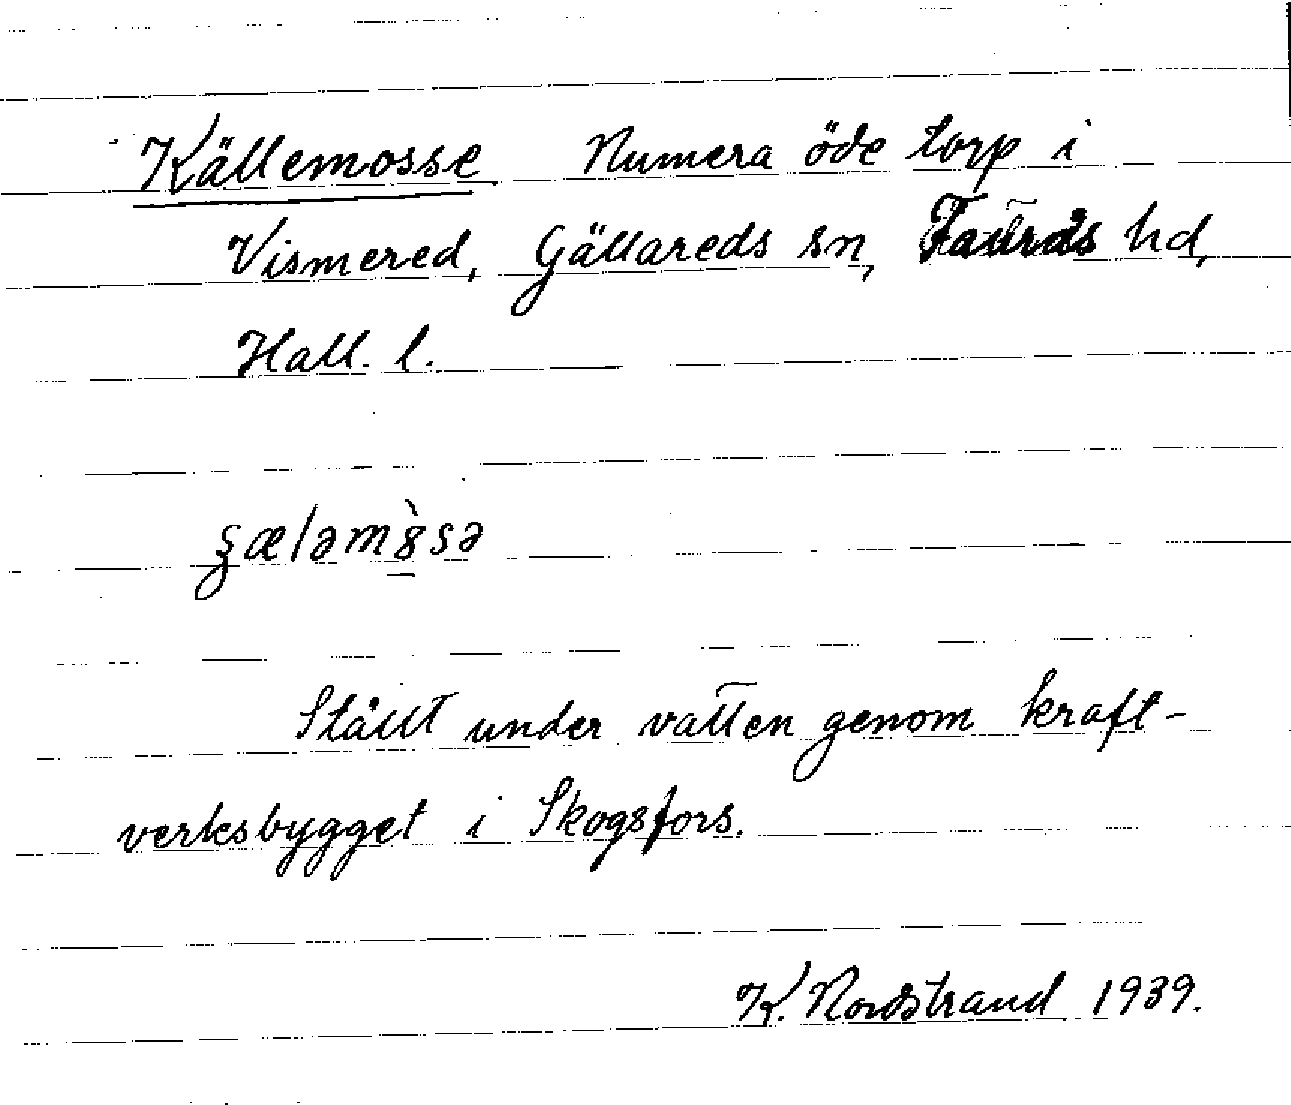 Källemosse Numera öde torp i
Vismered, Gällareds sn, Faurås hd,
Hall. l.
Ställt under vatten genom kraft-
verksbygget i Skogsfors.
K. Nordstrand 1939.